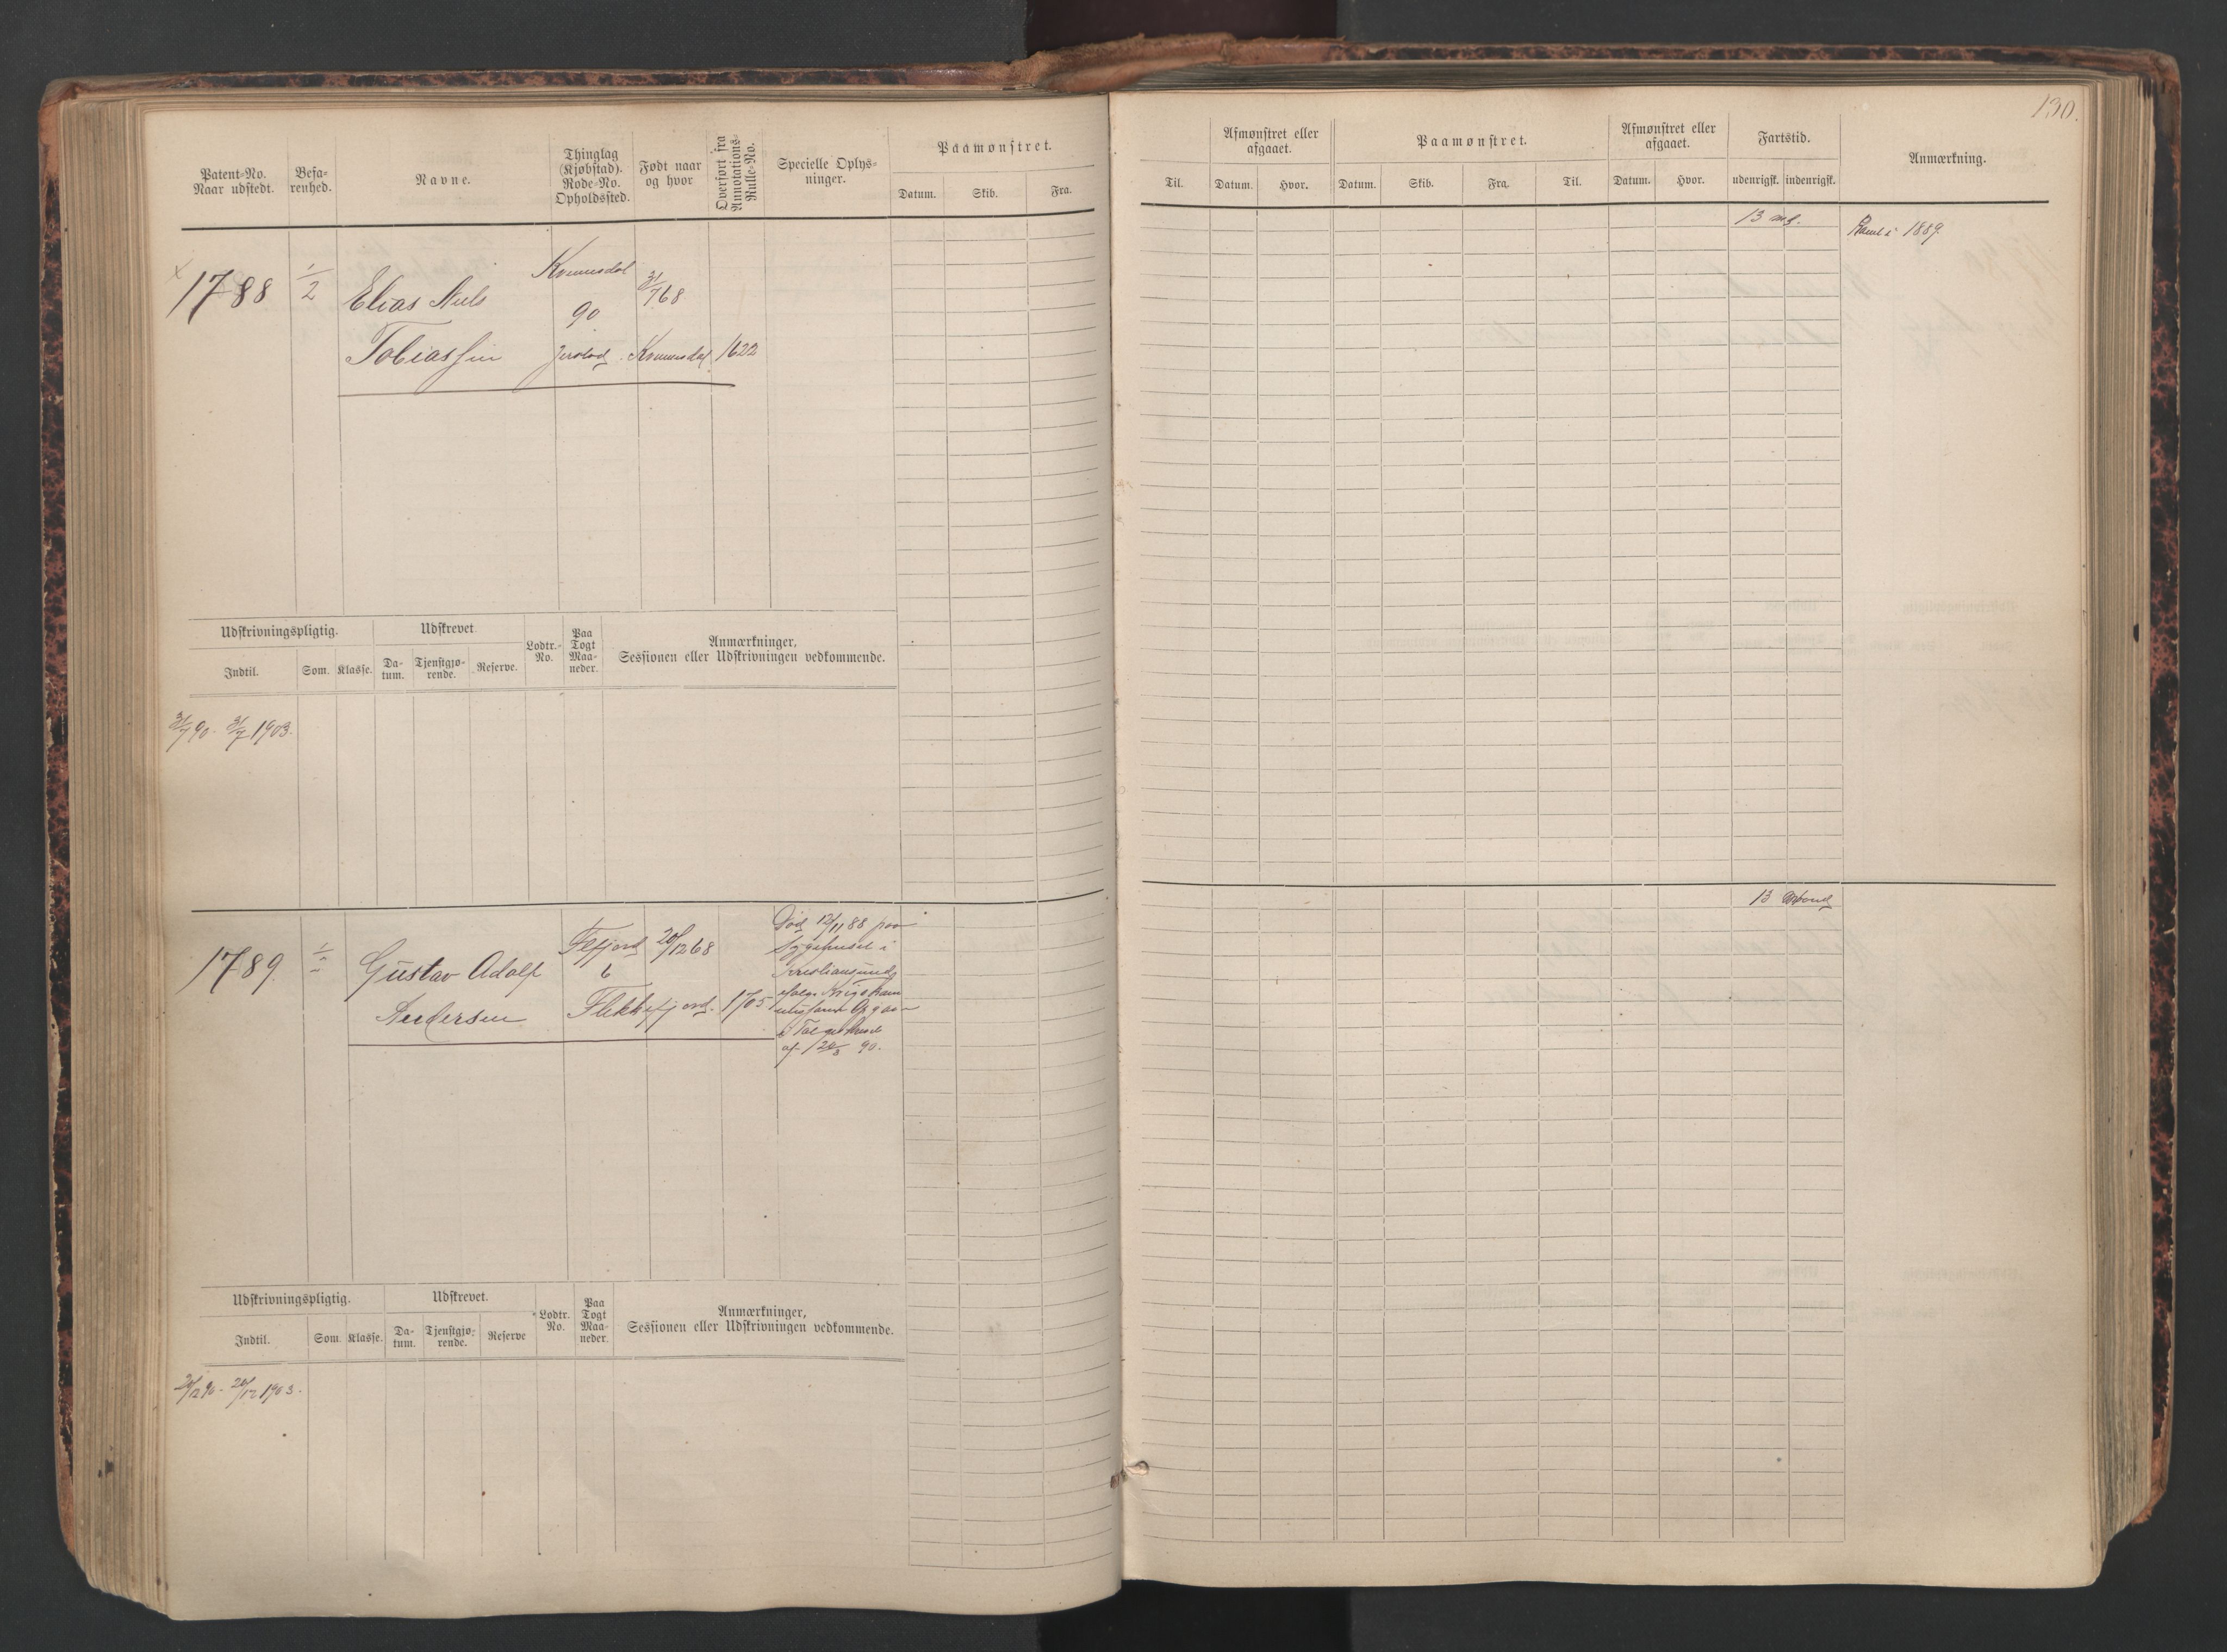 130.
Patent-No.
Naar udstedt.
Befa-
renhed.
Navne.
Thinglag
(Kjøbstad).
Rode-No.
Opholdssted.
Født naar
og hvor
Overført fra
Annotations-
Rulle-No.
Specielle Oplys-
ninger.
Paamønstret.
Datum. Skib. Fra.
Til.
Afmønstret eller
afgaaet.
Datum. Hvor.
Paamønstret.
Datum. Skib. Fra. Til.
Afmønstret eller
afgaaet.
Datum. Hvor.
Fartstid.
udenrigsk. indenrigsk.
Anmærkning.
1788
1/2
Elias Nils
Tobiassen
Kvinesdal
90
3/7 68
Kvinesdal 1622
13 md.
1889
Udskrivningspligtig.
Indtil. Som. Klasse.
Udskrevet
Da-
tum.
Tjenstgjø-
rende.
Reserve.
Lodtr.-
No.
Paa
Togt
Maa-
neder.
Anmærkninger,
Sessionen eller Udskrivningen vedkommende.
3/7 90 - 3/7 1903.
1789
Gustav Adolf
Andersen
Flefjord
6
20/12 68
Flekkefjord. 1705
Død 12/11 88 paa
Sygehuset i
Kristiansund
90.
13
Udskrivningspligtig.
Indtil. Som. Klasse.
Udskrevet.
Da-
tum.
Tjenstgjø-
rende.
Reserve
Lodtr.
No.
Paa
Togt
Maa-
neder.
Anmærkninger,
Sessionen eller Udskrivningen vedkommende.
20/12 90 - 20/12 1903.